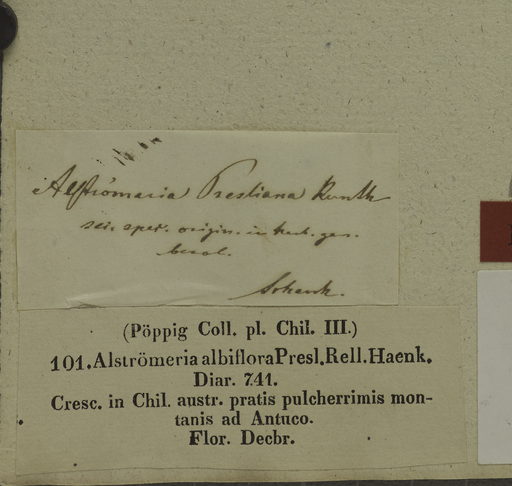 Alströmeria Presliana Kunth
sec. spec. origin. in herb. gen.
berol.
Schenk.
(Pöppig Coll. pl. Chil. III.)
101. Alströmeria albiflora Presl. Rell. Haenk.
Diar. 741.
Cresc. in Chil. austr. pratis pulcherrimis mon-
tanis ad Antuco.
Flor. Decbr.